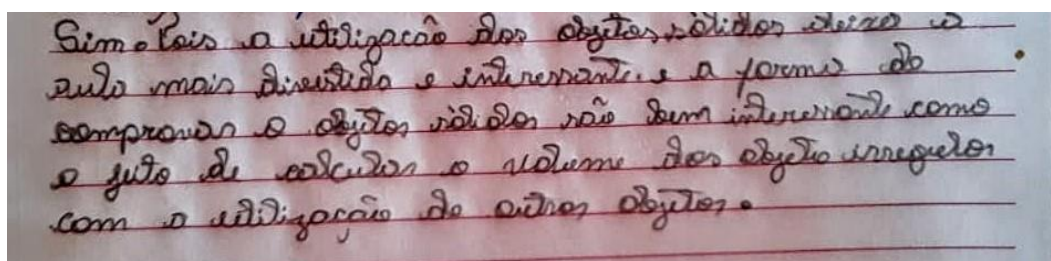 Sim. Pois a utilização dos objetos sólidos deixa a
aula mais divertida e interessante. e a forma do
comprovar o objetos sólidos são bem interessante como
o jeito de calcular o volume dos objeto irregular
com a utilização de outros objetos.